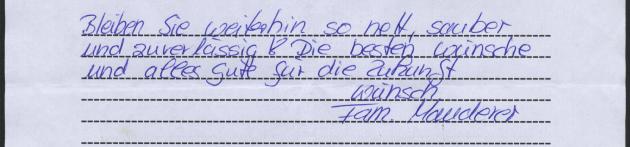 Bleiben Sie weiterhin so nett, sauber
und zuverlässig & Die besten wünsche
und alles gute für die Zukunft
wünsch
Fam. Mauderer